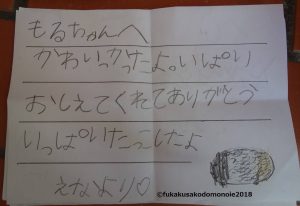 もるちゃんへ
かわいかったよっいぱい
おしえてくれてありがとう
いっぱいけっこしたよ
えなより♡
©fukakusakodomonoie2018